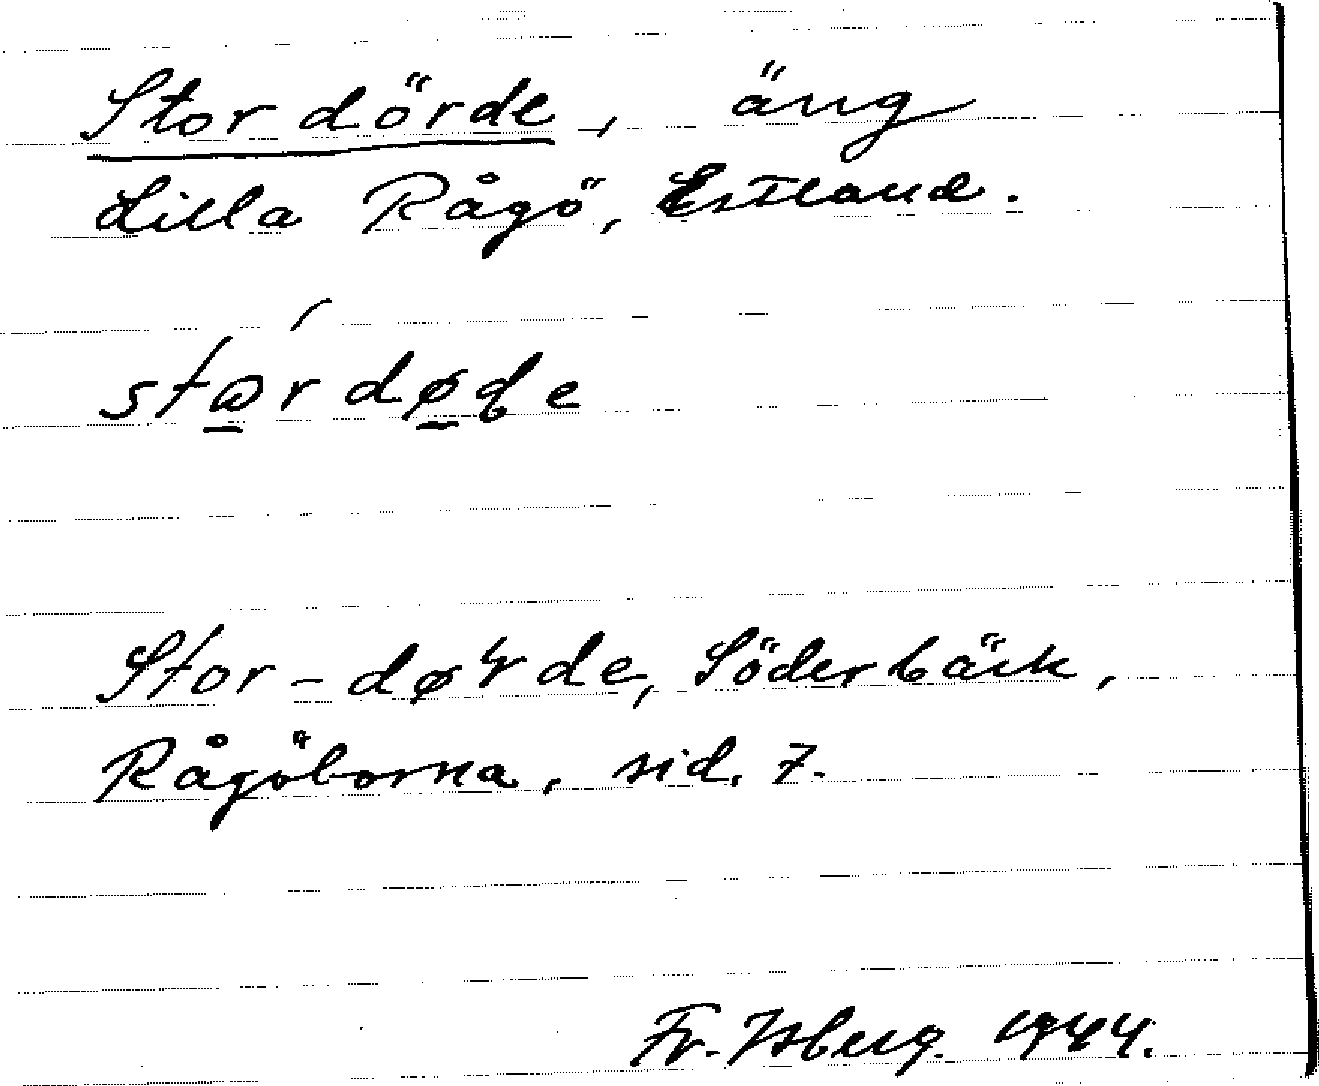 Stordörde, äng
Lilla Rågö, Estland.
Stor-døʳde, Söderbäck,
Rågöborna, sid. 7.
Fr. Isberg. 1944.